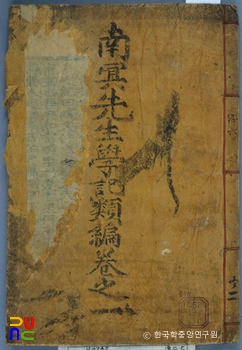 南冥先生學記類編卷之一
ⓒ 한국학중앙연구원